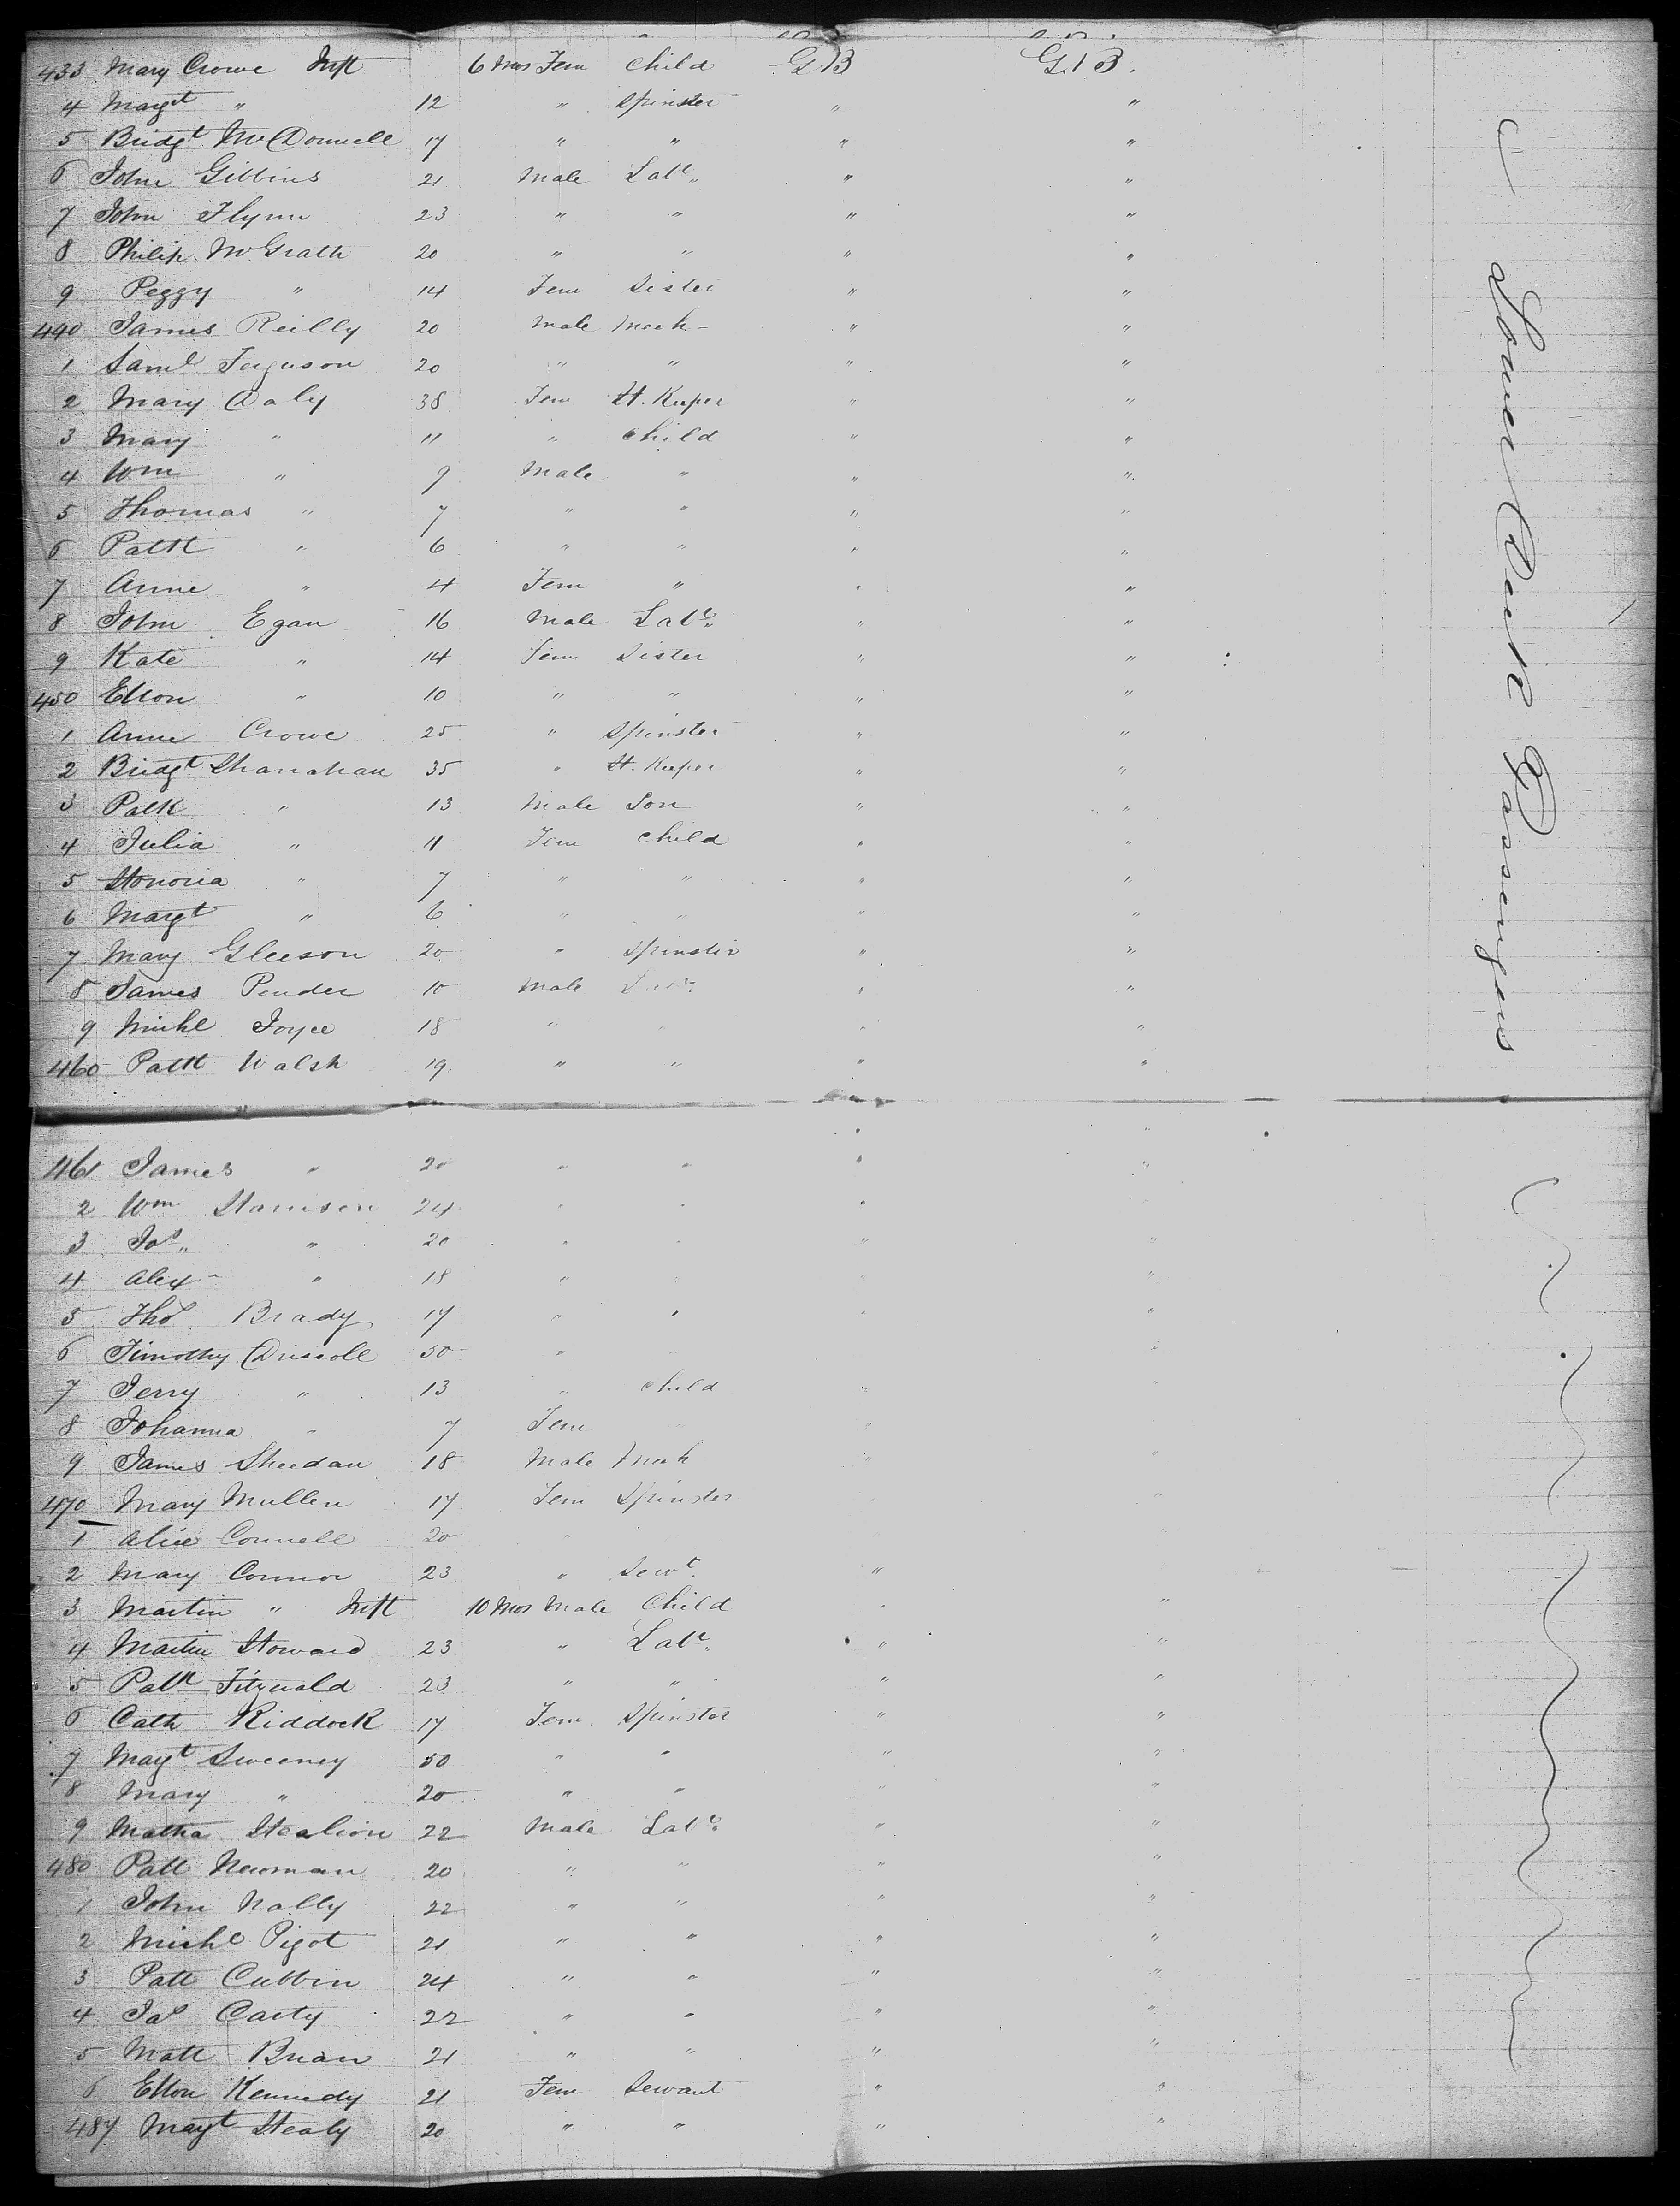 433 Mary Crowe Inft 6 Mos Fem Child GB G.B.
4 Margt " 12 " Spinster " "
5 Bridgt McDonnell 17 " " " "
6 John Gibbins 21 Male Labr " "
7 John Flynn 23 " " " "
8 Philip McGrath 20 " " " "
9 Peggy " 14 Fem Sister " "
440 James Reilly 20 Male Mech - " "
1 Saml Ferguson 20 " " " "
2 Mary Daly 38 Fem H. Keeper " "
3 Mary " 11 " Child " "
4 Wm " 9 Male " " "
5 Thomas " 7 " " " "
6 Patk " 6 " " " "
7 Anne " 4 Fem " " "
8 John Egan 16 Male Labr " "
9 Kate " 14 Fem Sister " "
450 Ellen " 10 " " " "
1 Anne Crowe 25 " Spinster " "
2 Bridgt Shanahan 35 " H. Keeper " "
3 Patk " 13 Male Son " "
4 Julia " 11 Fem Child " "
5 Honoria " 7 " " " "
6 Margt " 6 " " " "
7 Mary Gleeson 20 " Spinster " "
8 James Pender 18 Male Labr " "
9 Michl Joyce 18 " " " "
460 Patk Walsh 19 " " " "
461 James " 20 " " " "
2 Wm Harrison 24 " " "
3 Jos " 20 " " " "
4 Alex - " 18 " "
5 Thos Brady 17 " " "
6 Timothy Driscoll 50 "
7 Jerry " 13 " Child "
8 Johanna " 7 Fem "
9 James Sheedan 18 Male Mech " "
470 Mary Mullen 17 Fem Spinster "
1 Alice Connell 20 "
2 Mary Connor 23 " Servt "
3 Martin " Inft 10 Mos Male Child " "
4 Martin Howard 23 " Labr " "
5 Patk Fitzgerald 23 " " " "
6 Cath Riddock 17 Fem Spinster " "
7 Magt Sweeney 50 " " " "
8 Mary " 20 " " " "
9 Matha Healion 22 Male Labr " "
480 Patt Newman 20 " " " "
1 John Nally 22 " " " "
2 Michl Pigot 21 " " " "
3 Patt Cubbin 24 " " " "
4 Jas Carty 22 " " " "
5 Matt Brian 21 " " " "
6 Ellen Kennedy 21 Fem Servant " "
487 Magt Healy 20 " " " "
Lower Deck Passengers